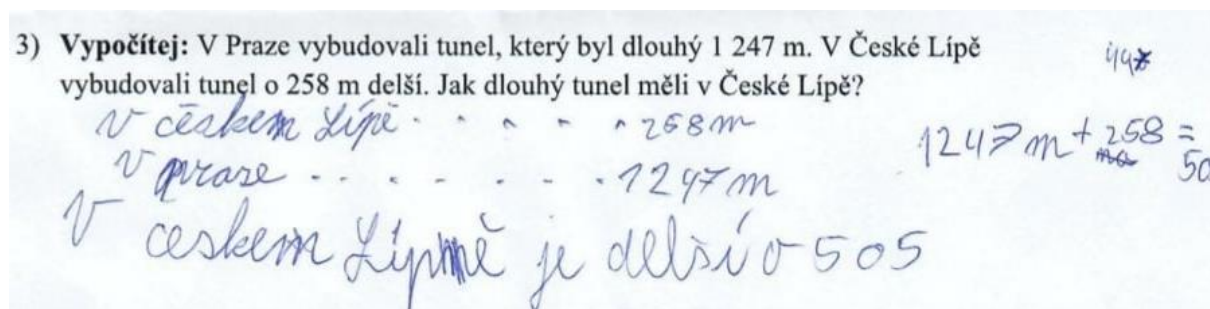 3) Vypočítej: V Praze vybudovali tunel, který byl dlouhý 1 247 m. V České Lípě
vybudovali tunel o 258 m delší. Jak dlouhý tunel měli v České Lípě?
v českem Lípě . . . . . 258 m
v praze . . . . . . . 1247 m
1247 m + 258 =
50
V ceskem je delší o 505